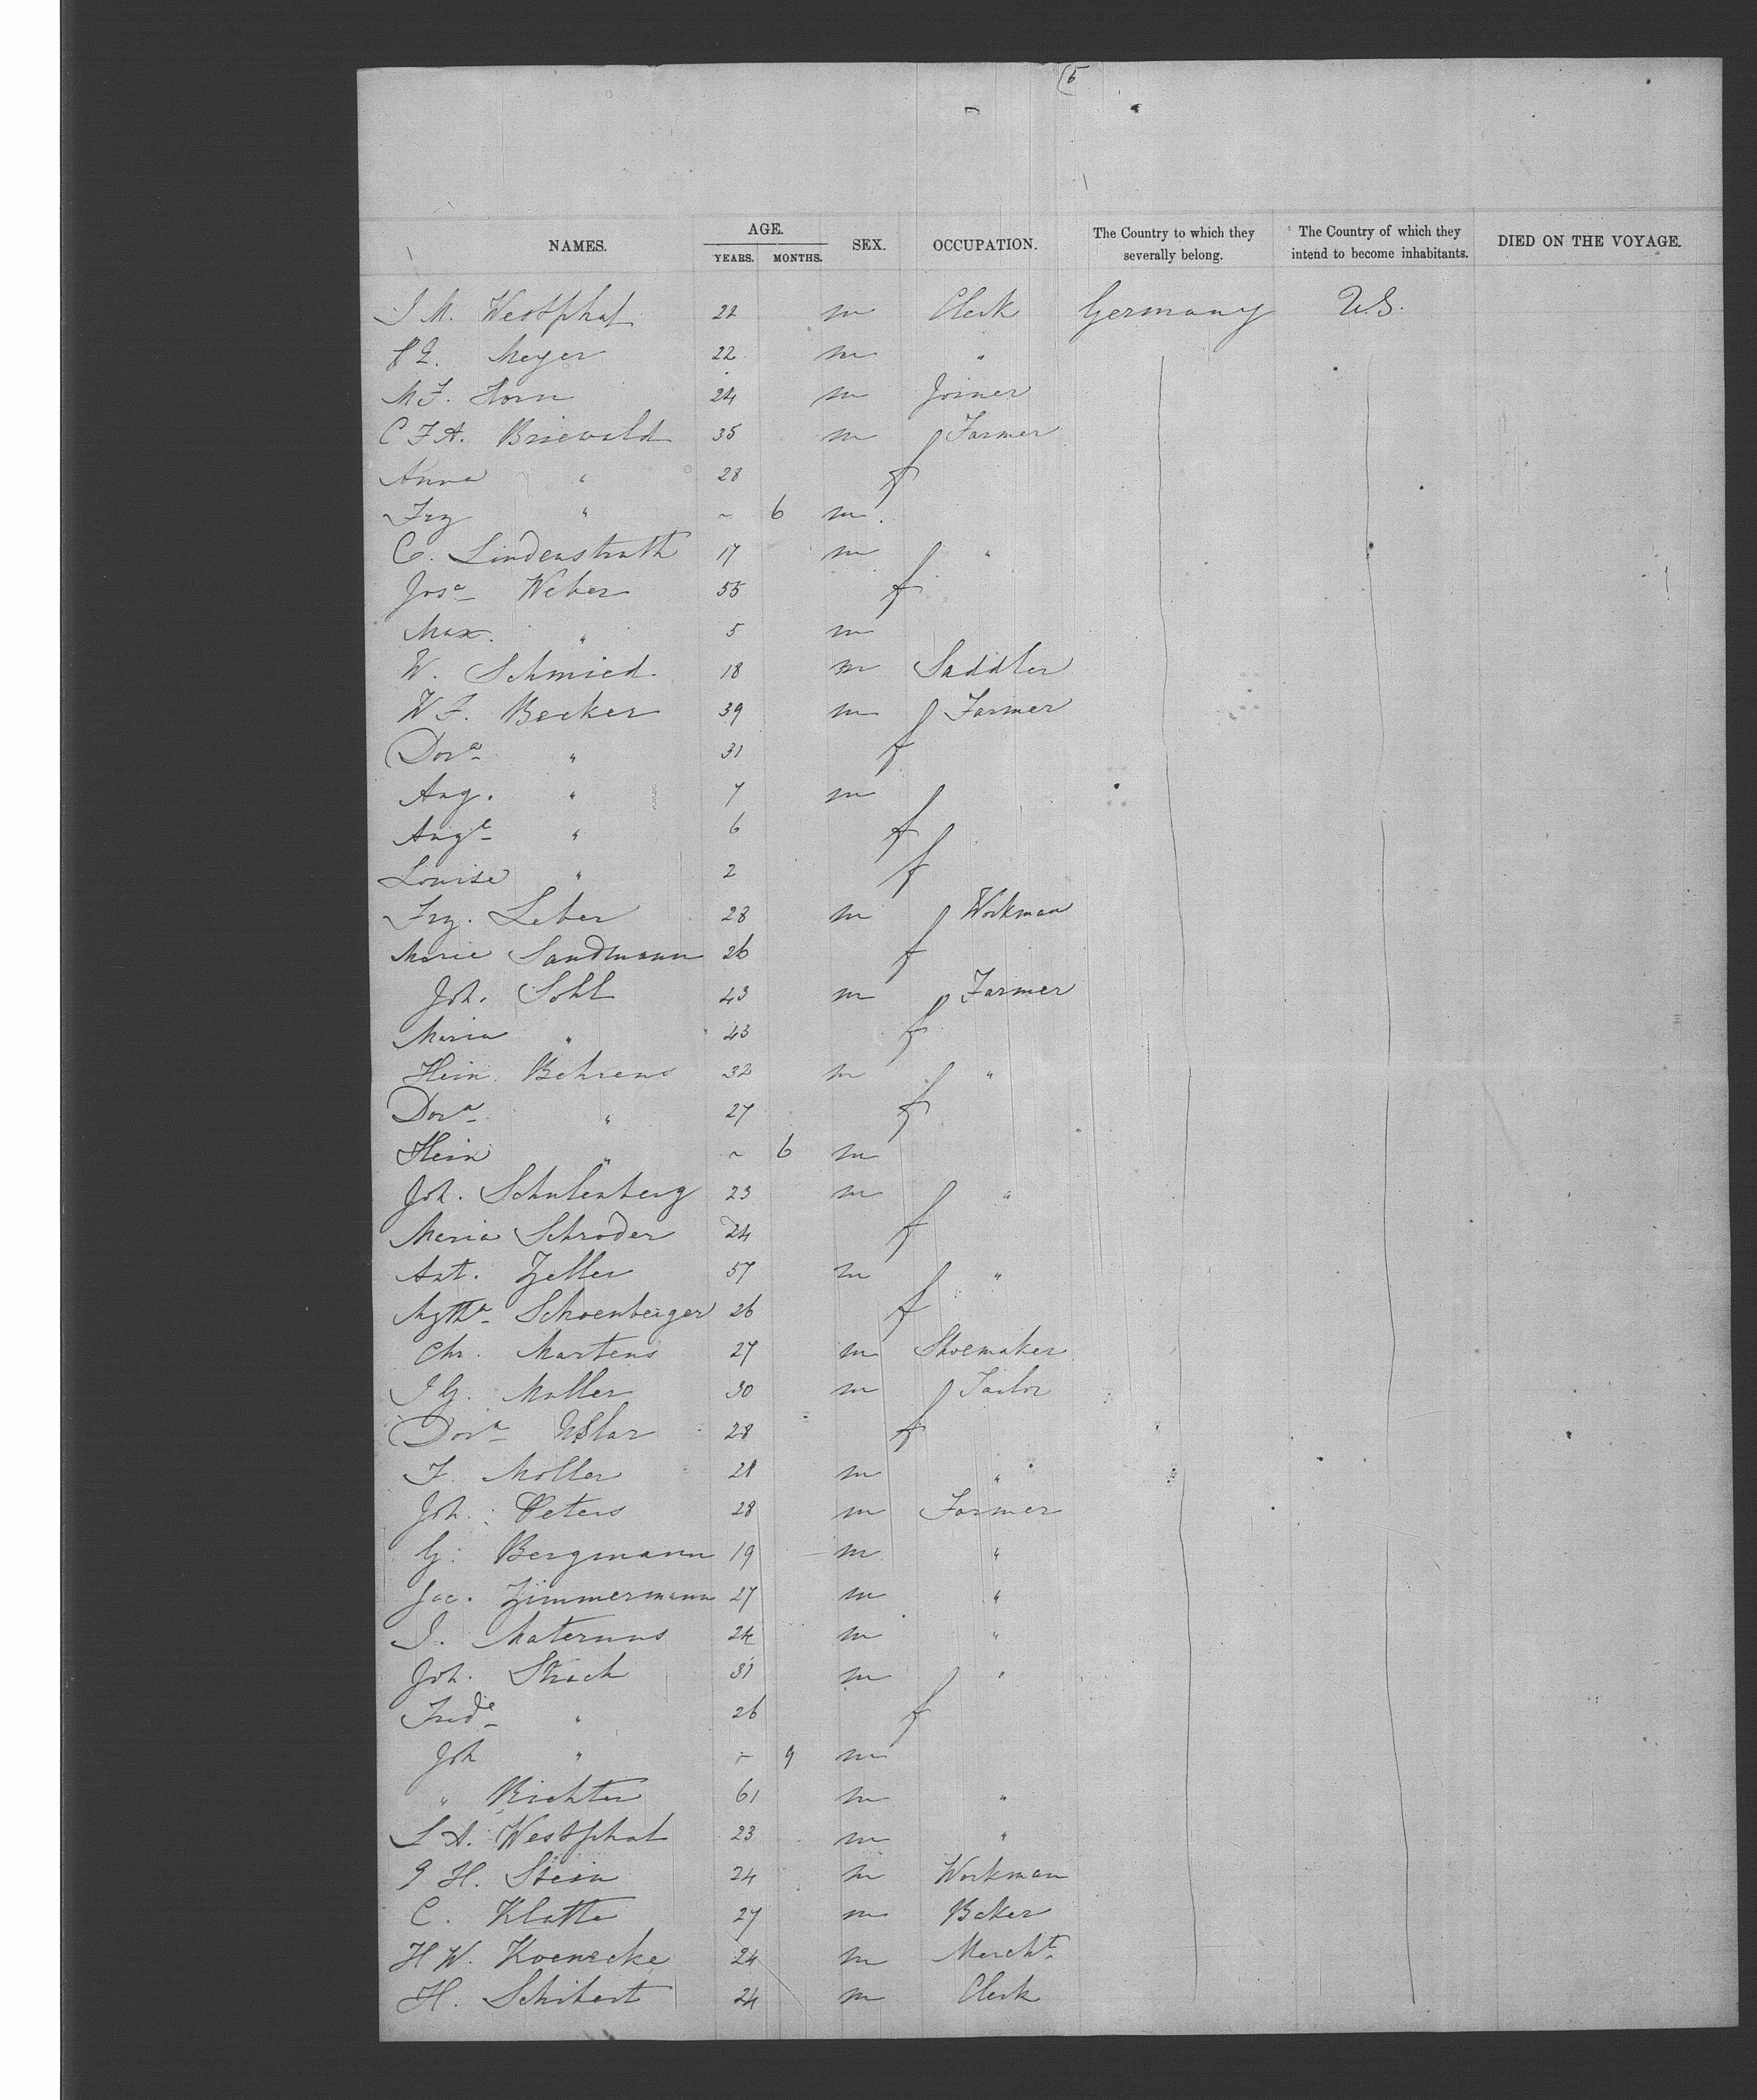 5
NAMES. AGE. YEARS. MONTHS. SEX. OCCUPATION. The Country to which they severally belong. The Country of which they intend to become inhabitants. DIED ON THE VOYAGE.
J M. Westphal 22 m Clerk Germany U.S.
Meyer 22 m "
M F. Horn 24 m Joiner
C F A. Briewald 35 m Farmer
Anna " 28 f
Frz " ~ 6 m
C. Lindenstruth 17 m "
Josa Weber 55 f
Max. " 5 m
W. Schmied 18 m Saddler
W F. Becker 39 m Farmer
Dora " 31 f
Aug. " 7 m
Auge " 6 f
Louise " 2 f
Frz. Leber 28 m Workman
Marie Sandmann 26 f
Joh. Sohl 43 m Farmer
Maria " 43 f
Hein. Behrens 32 m "
Dora " 27 f
Hein " ~ 6 m
Joh. Schulenberg 23 m "
Maria Schroder 24 f
Ant. Zeller 57 m "
Schoenberger 26 f
Chr. Martens 27 m Shoemaker
J G. Muller 30 m Tailor
Dora Uslar 28 f
F. Moller 28 m "
Joh. Peters 28 m Farmer
G. Bergmann 19 m "
Jac. Zimmermann 27 m "
J. Maternus 24 m "
Joh. Strack 31 m "
Fride " 26 f
Joh " ~ 9 m
" Richter 61 m "
L A. Westphal 23 m "
J H. Stein 24 m Workman
C. Klatte 27 m Baker
H W. Koenecke 24 m Mercht.
H. Schibert 24 m Clerk